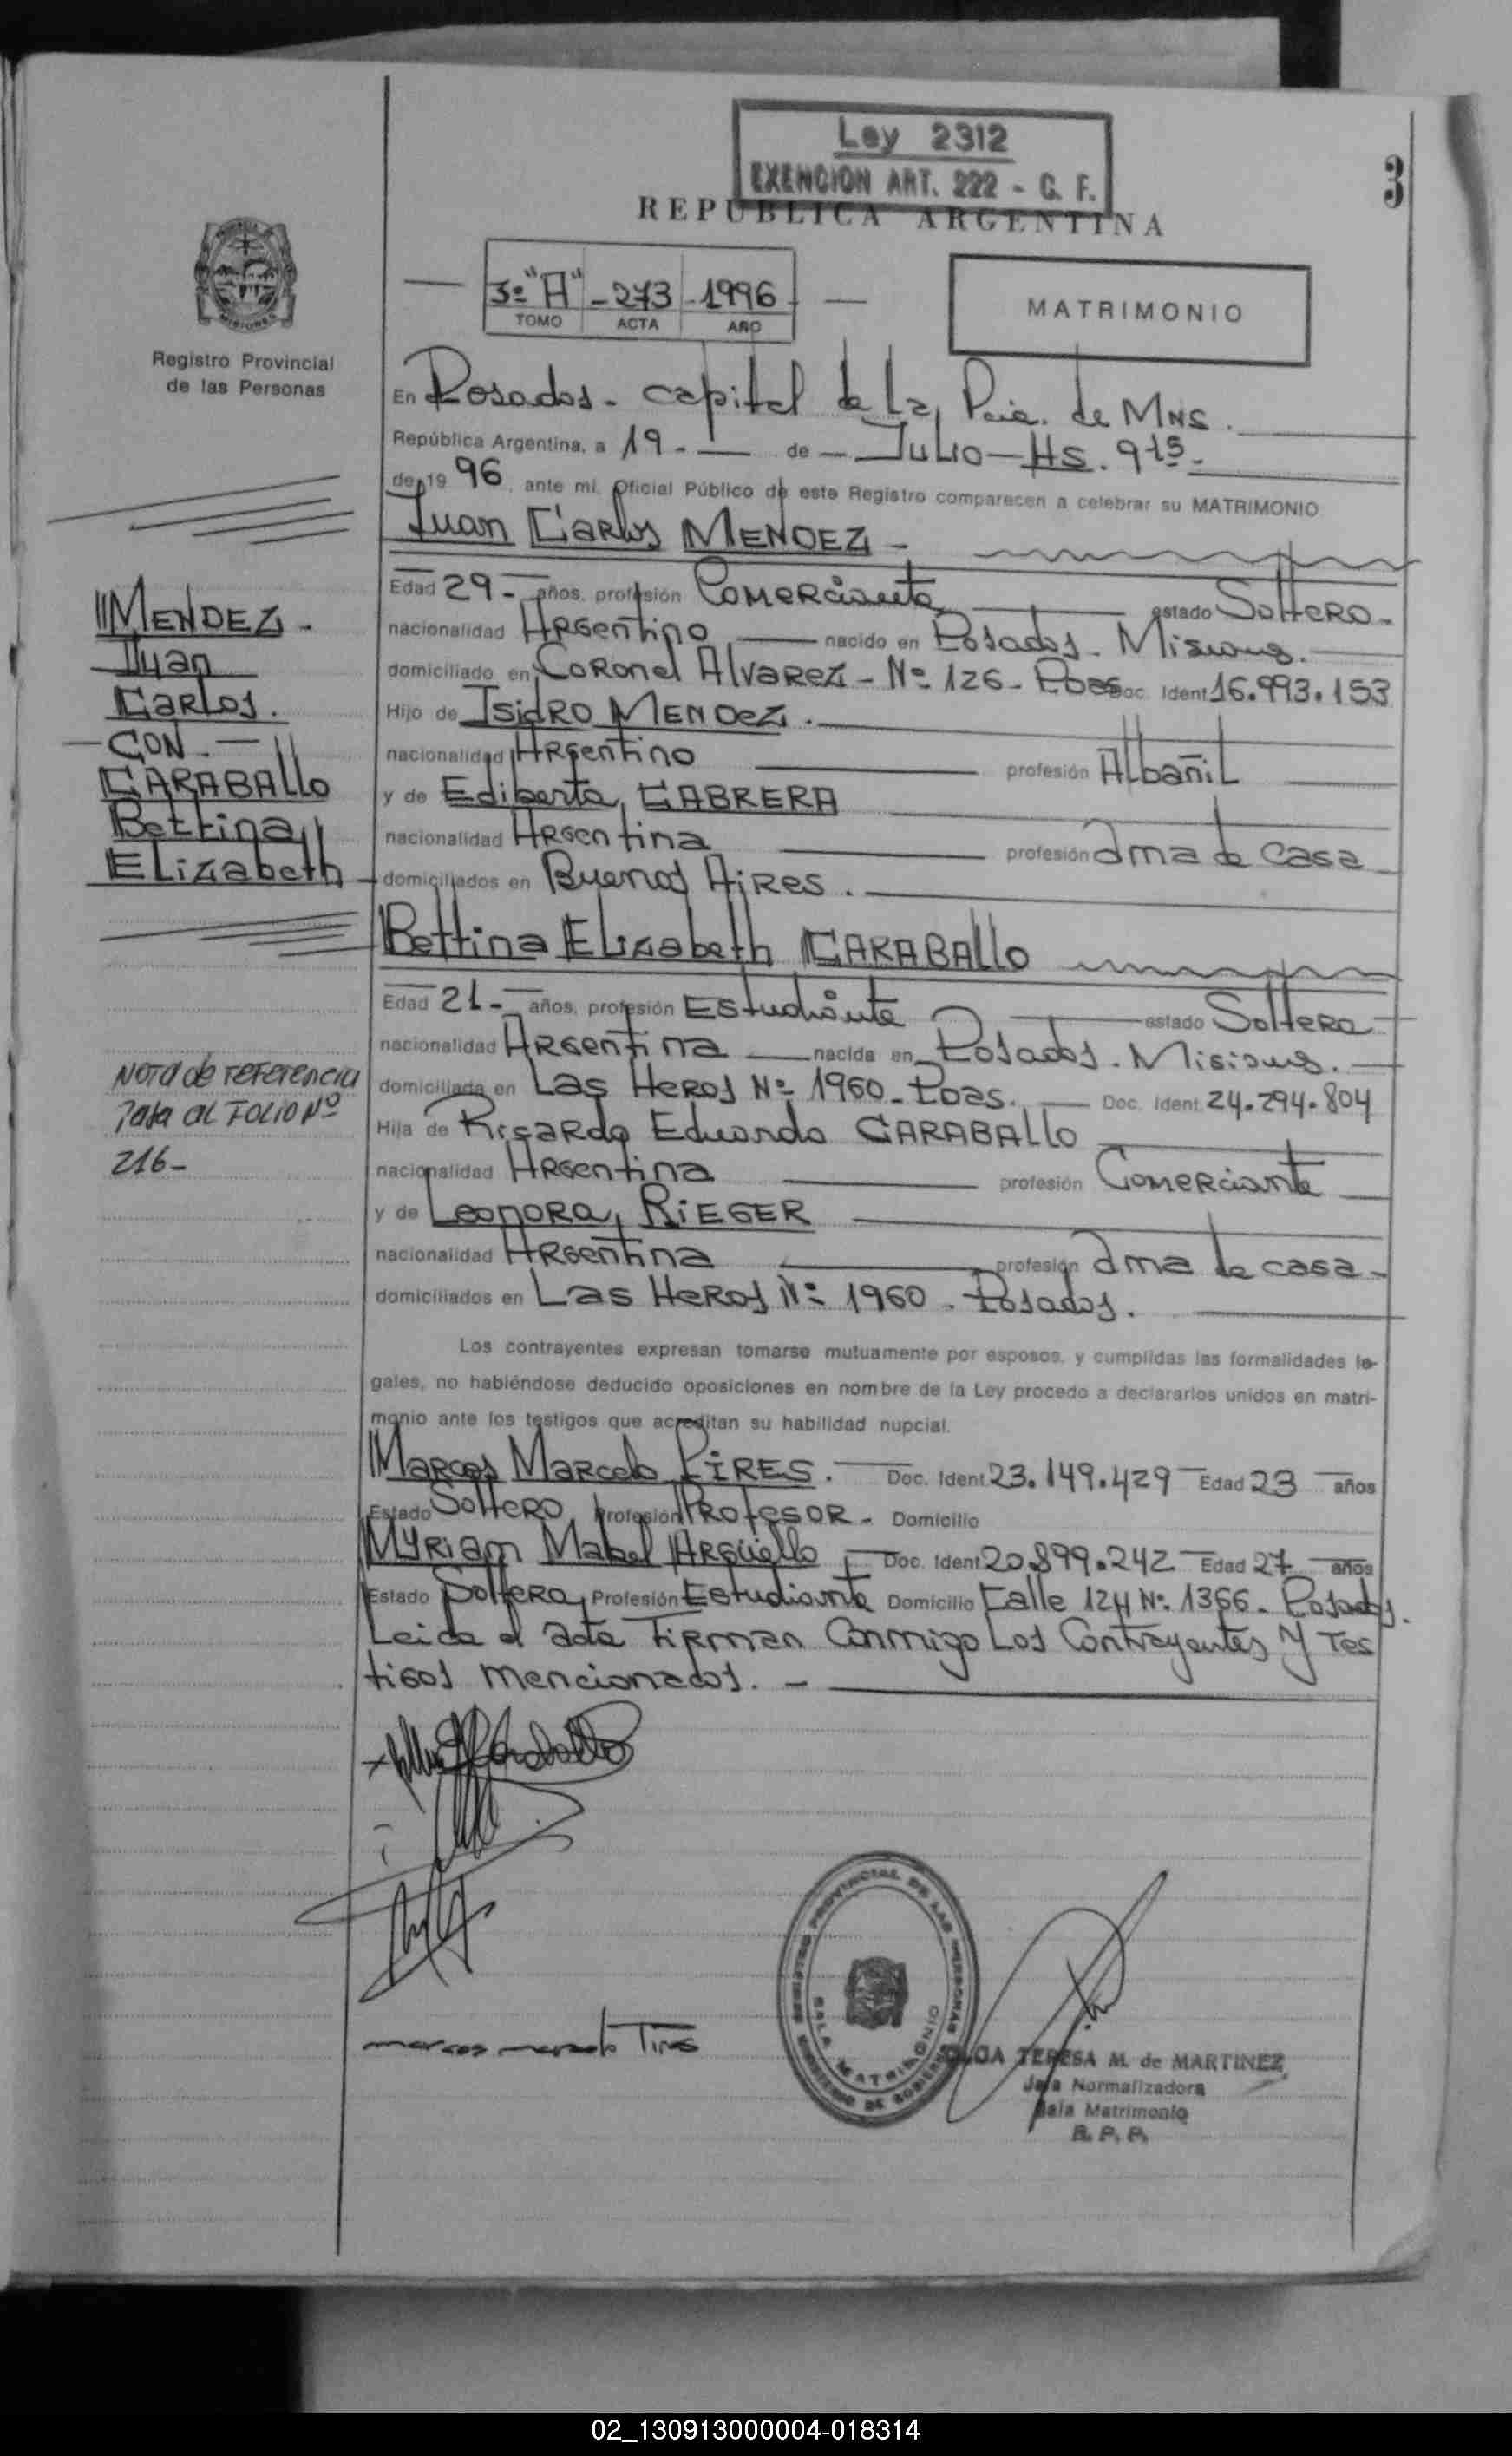 Ley 2312
EXENCION ART. 222 - C. F.
3
REPUBLICA ARGENTINA
3º "A" - 273 - 1996
TOMO ACTA AÑO
MATRIMONIO
Registro Provincial
de las Personas
En Posadas - capital de La Pcia. de MNS.
República Argentina, a 19 - de - Julio - HS. 9 15 -
de 19 96, ante mí, Oficial Público de este Registro comparecen a celebrar su MATRIMONIO
Juan Carlos MENDEZ -
Edad 29 - años, profesión Comerciante estado Soltero -
nacionalidad Argentino nacido en Posadas - Misiones.
domiciliado en Coronel Alvarez - Nº 126 - Pdas Doc. Ident 16.993.153
Hijo de Isidro MENDEZ.
nacionalidad Argentino profesión Albañil
y de Ediberta, CABRERA
nacionalidad Argentina profesión ama de casa
domiciliados en Buenos Aires.
MENDEZ -
Juan
Carlos.
- CON -
CARABALLO
Bettina
Elizabeth
Bettina Elizabeth CARABALLO
Edad 21 - años, profesión Estudiante estado Soltera
nacionalidad Argentina nacida en Posadas - Misiones.
domiciliada en Las Heros Nº 1960 - Pdas. Doc. Ident. 24.294.804
Hija de Ricardo Eduardo CARABALLO
nacionalidad Argentina profesión Comerciante
y de Leonora, RIEGER
nacionalidad Argentina profesión ama de casa -
domiciliados en Las Heros Nº 1960 - Posadas.
NOTA de referencia
Pasa al FOLIO Nº
216 -
Los contrayentes expresan tomarse mutuamente por esposos, y cumplidas las formalidades le-
gales, no habiéndose deducido oposiciones en nombre de la Ley procedo a declararlos unidos en matri-
monio ante los testigos que acreditan su habilidad nupcial.
Marcos Marcelo PIRES. Doc. Ident 23.149.429 Edad 23 años
Estado Soltero, Profesión Profesor - Domicilio
Myriam Mabel Argüello Doc. Ident 20.899.242 Edad 27 años
Estado Soltera, Profesión Estudiante Domicilio Calle 124 Nº 1366 - Posadas.
Leida el acta Firman Conmigo Los Contrayentes y Tes
tigos mencionados. -
marcos marcelo Pires
REGISTRO PROVINCIAL DE LAS PERSONAS
MINISTERIO DE GOBIERNO
SALA MATRIMONIO
OLGA TERESA M. de MARTINEZ
Jefa Normalizadora
Sala Matrimonio
R. P. P.
02_130913000004-018314